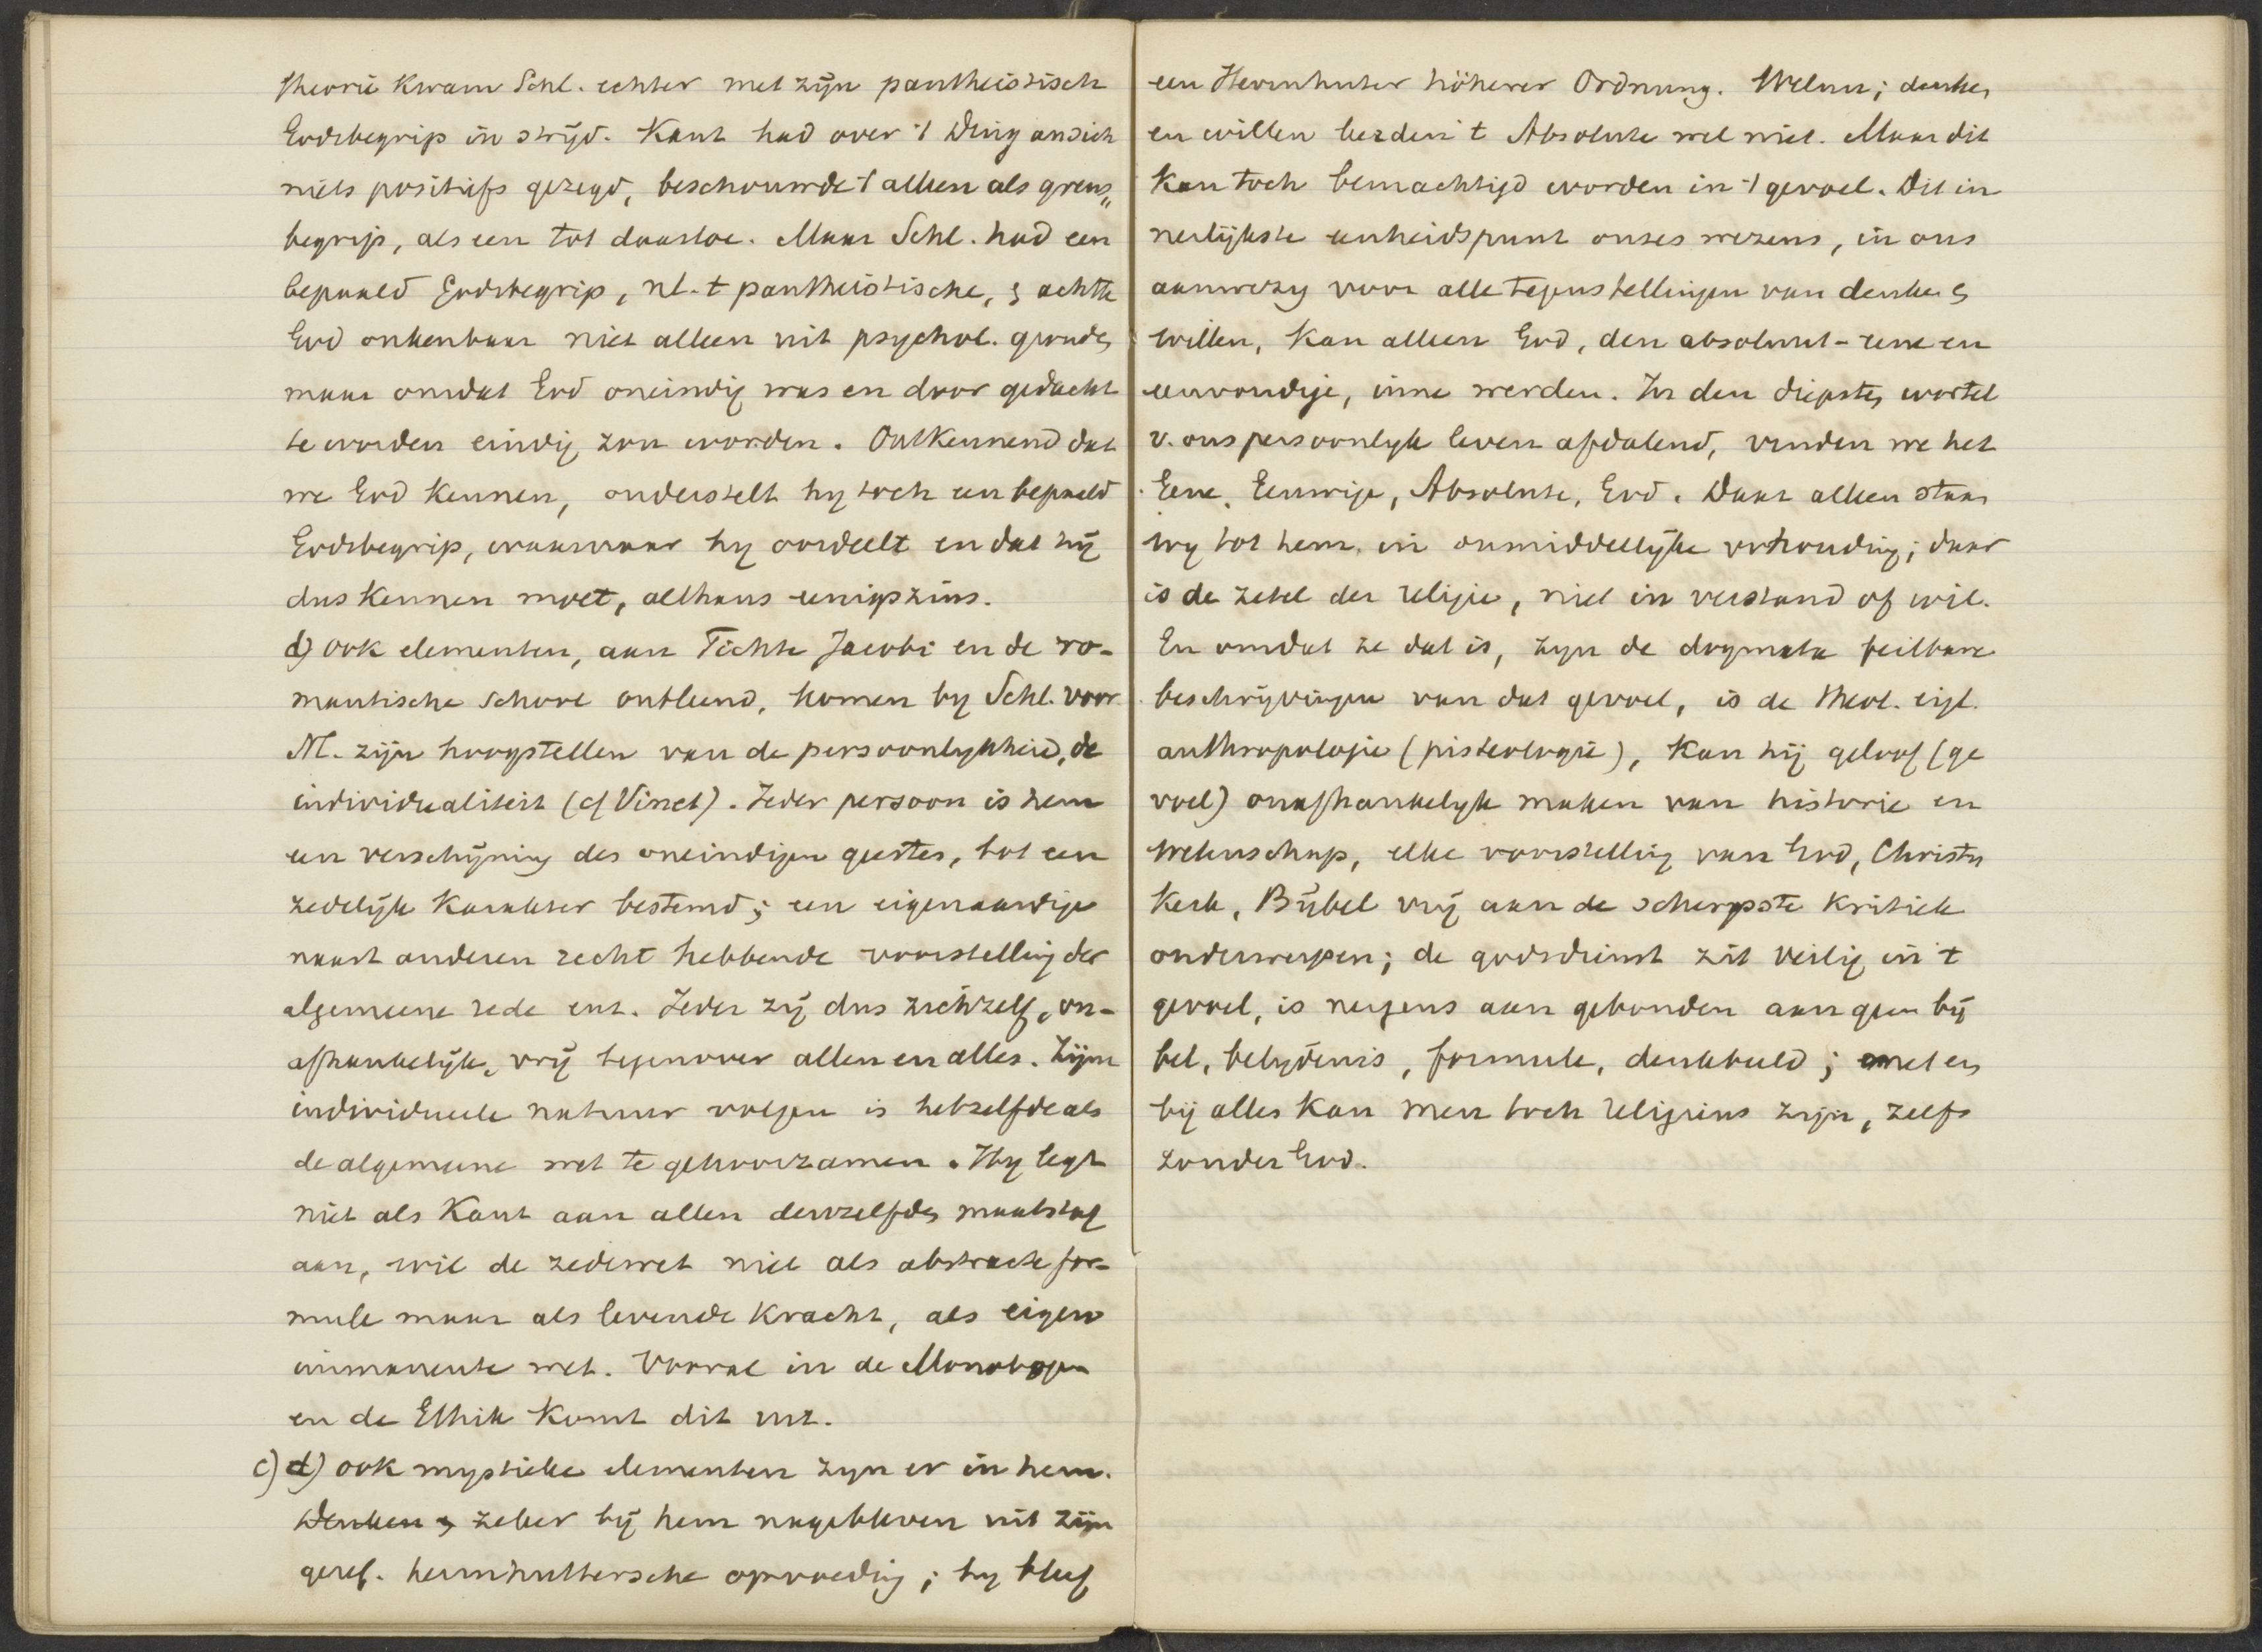 theorie kwam Schl. echter met zijn pantheistisch
Godsbegrip in strijd. Kant had over 't Ding an sich
niets positiefs gezegd, beschouwde 't alleen als grens„
begrip, als een tot daartoe. Maar Schl. had een
bepaald Godsbegrip, nl. 't pantheistische, & achtte
God onkenbaar niet alleen uit psychol. gronden
maar omdat God oneindig was en door gedacht
te worden eindig zou worden. Ontkennend dat
we God kennen, onderstelt hy toch een bepaald
Godsbegrip, waarnaar hy oordeelt en dat hij
dus kennen moet, althans eenigszins.
d) ook elementen, aan Fichte Jacobi en de ro-
mantische school ontleend, komen by Schl. voor
Nl. zijn hoogstellen van de persoonlykheid, de
individualiteit (cf Vinet). Ieder persoon is hem
een verschijning des oneindigen geestes, tot een
zedelijk karakter bestemd; een eigenaardige
naast anderen recht hebbende voorstelling der
algemeene rede ent. Ieder zij dus zichzelf, on-
afhankelijk, vrij tegenover allen en alles. Zijne
individueele natuur volgen is hetzelfde als
de algemeene wet te gehoorzamen. Hy legt
niet als Kant aan allen denzelfden maatstaf
aan, wil de zedewet niet als abstracte for-
mule maar als levende kracht, als eigen
immanente wet. Vooral in de Monologen
en de Ethik komt dit uit.
c) d) ook mystieke elementen zyn er in hem.
Denken & zeker bij hem nagebleven uit zijn
geref. hernhuttersche opvoeding; hy bleef
een Herrnhuter höherer Ordnung. Welnu; denken
en willen bezden 't Absolute wel niet. Maar dit
kan toch bemachtigd worden in 't gevoel. Dit in
nerlijkste eenheidspunt onzes wezens, in ons
aanwezig voor alle tegenstellingen van denken &
willen, kan alleen God, den absoluut-eene en
eenvoudige, inne werden. In den diepsten wortel
v. ons persoonlyk leven afdalend, vinden we het
Eene, Eeuwige, Absolute, God. Daar alleen staan
wy tot hem in onmiddellijke verhouding; daar
is de zetel der religie, niet in verstand of wil.
En omdat ze dat is, zyn de dogmata feilbare
beschrijvingen van dat gevoel, is de theol. eigl.
anthropologie (pisteologie), kan hij geloof (ge
voel) onafhankelyk maken van historie en
wetenschap, elke voorstelling van God, Christus
kerk, Bijbel vrij aan de scherpste kritiek
onderwerpen; de godsdienst zit veilig in 't
gevoel, is nergens aan gebonden aan geen bij
bel, belydenis, formule, denkbeeld; met en
bij alles kan men toch religieus zijn, zelfs
zonder God.